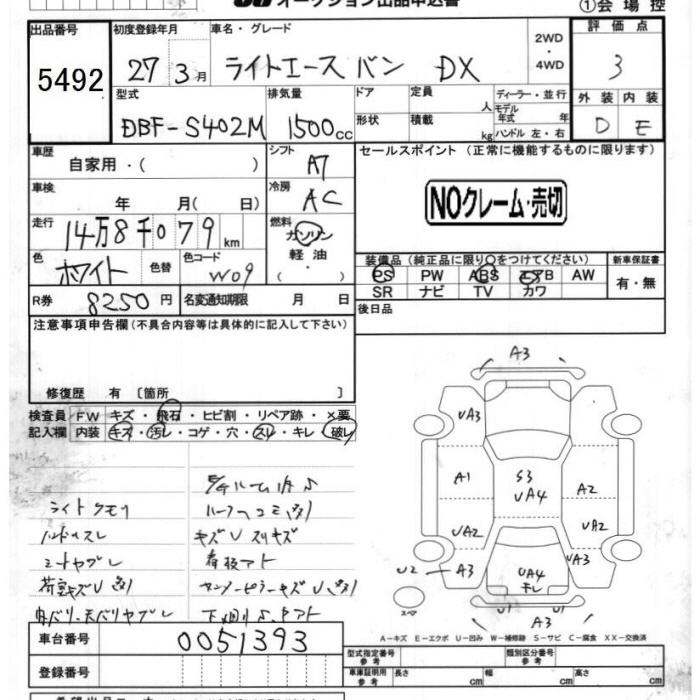 オークション出品申込書
①会場控
出品番号
5492
初度登録年月
27 3月
車名・グレード
ライトエース バン DX
2WD
・
4WD
評価点
3
型式
DBF-S402M
排気量
1500cc
ドア
定員
人
形状
積載
kg
ディーラー・並行
モデル年式 年
ハンドル 左・右
外装 内装
D E
車歴
自家用・( )
シフト
AT
車検
年 月( 日)
冷房
AC
走行
14万8千079km
燃料
ガソリン
軽油
・( )
色
ホワイト
色替
色コード
W09
R券
8250円
名変通知期限 月 日
セールスポイント (正常に機能するものに限ります)
NOクレーム・売切
装備品(純正品に限り○をつけてください)
PS PW ABS エアB AW
SR ナビ TV カワ
新車保証書
有・無
後日品
注意事項申告欄(不具合内容等は具体的に記入して下さい)
修復歴 有 〔箇所 〕
検査員 FW キズ・飛石・ヒビ割・リペア跡・×要
記入欄 内装 キズ・汚レ・コゲ・穴・スレ・キレ・破レ
ライトクモリ
ハンドルスレ
シートヤブレ
荷室キズU
キズU スリキズ
看板アト
車台番号
0051393
登録番号
A3
UA3
A1
S3
UA4
A2
UA2
UA2
UA3
U2
A3
UA4
キレ
U1
U1
A3
スペア
A-キズ E-エクボ U-凹み W-補修跡 S-サビ C-腐食 XX-交換済
型式指定番号
参考
類別区分番号
参考
車庫証明用
参考
長さ cm 幅 cm 高さ cm